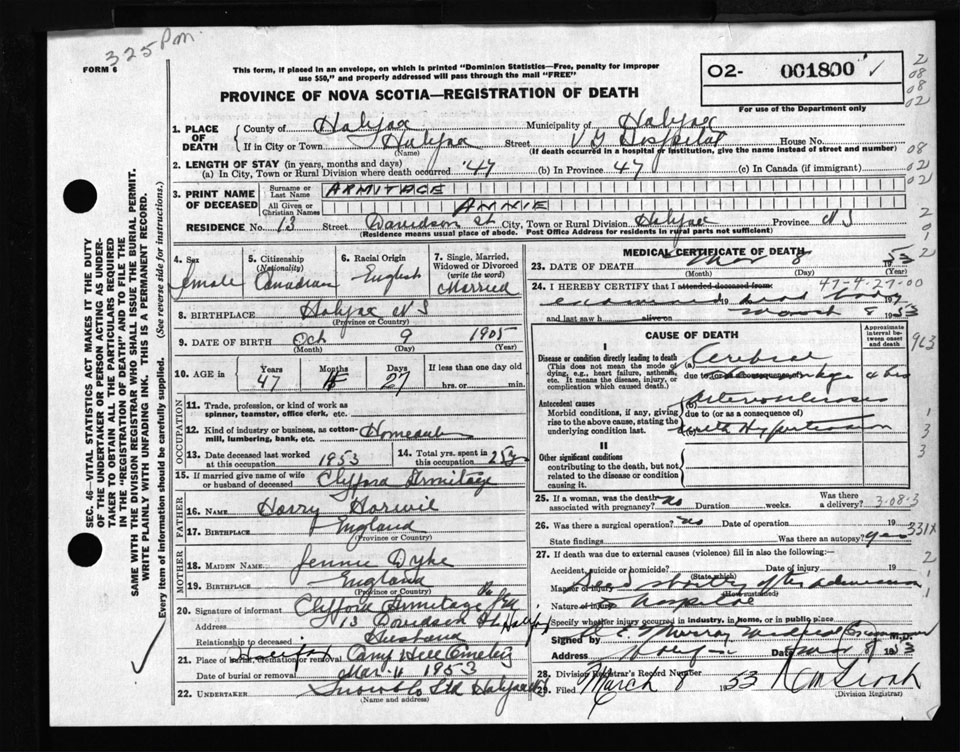 325 Pm.
FORM 6
This form, if placed in an envelope, on which is printed "Dominion Statistics—Free, penalty for improper
use $50," and properly addressed will pass through the mail "FREE"
PROVINCE OF NOVA SCOTIA—REGISTRATION OF DEATH
O2- 001800 ✓
For use of the Department only
2
08
08
02
08
02
02
2
0
1
2
1. PLACE OF DEATH { County of Halifax Municipality of Halifax
If in City or Town Halifax Street V G Hospital House No.
(Name) (If death occurred in a hospital or institution, give the name instead of street and number)
2. LENGTH OF STAY (in years, months and days)
(a) In City, Town or Rural Division where death occurred 47 (b) In Province 47 (c) In Canada (if immigrant)
3. PRINT NAME OF DECEASED { Surname or Last Name ARMITAGE
All Given or Christian Names ANNIE
RESIDENCE No. 13 Street Davidson St City, Town or Rural Division Halifax Province N S
(Residence means usual place of abode. Post Office Address for residents in rural parts not sufficient)
SEC. 46—VITAL STATISTICS ACT MAKES IT THE DUTY
OF THE UNDERTAKER OR PERSON ACTING AS UNDER-
TAKER TO OBTAIN ALL THE PARTICULARS REQUIRED
IN THE "REGISTRATION OF DEATH" AND TO FILE THE
SAME WITH THE DIVISION REGISTRAR WHO SHALL ISSUE THE BURIAL PERMIT.
WRITE PLAINLY WITH UNFADING INK. THIS IS A PERMANENT RECORD.
Every item of information should be carefully supplied. (See reverse side for instructions.)
4. Sex Female
5. Citizenship (Nationality) Canadian
6. Racial Origin English
7. Single, Married, Widowed or Divorced (write the word) Married
8. BIRTHPLACE Halifax N S
(Province or Country)
9. DATE OF BIRTH Oct 9 1905
(Month) (Day) (Year)
10. AGE in { Years 47 Months Days 27 If less than one day old
hrs. or min.
OCCUPATION
11. Trade, profession, or kind of work as spinner, teamster, office clerk, etc.
12. Kind of industry or business, as cotton-mill, lumbering, bank, etc.
13. Date deceased last worked at this occupation 1953
14. Total yrs. spent in this occupation 25
15. If married give name of wife or husband of deceased Clifford Armitage
FATHER
16. NAME Harry
17. BIRTHPLACE England
(Province or Country)
MOTHER
18. MAIDEN NAME Jennie Dyke
19. BIRTHPLACE England
(Province or Country)
20. Signature of informant Clifford Armitage
Address 13 Davidson St Halifax
Relationship to deceased Husband
21. Place of burial, cremation or removal Halifax Camp Hill Cemetery
Date of burial or removal Mar 11 1953
22. UNDERTAKER Snow & Co Ltd Halifax
(Name and address)
MEDICAL CERTIFICATE OF DEATH
23. DATE OF DEATH Mar 8 1953
(Month) (Day) (Year)
47-4-27-00
24. I HEREBY CERTIFY that I attended deceased from:
examined dead body
19
and last saw h alive on March 8 1953
CAUSE OF DEATH
Approximate interval between onset and death
I
Disease or condition directly leading to death
(This does not mean the mode of dying, e.g., heart failure, asthenia, etc. It means the disease, injury, or complication which caused death.)
(a) Cerebral
due to (or as a consequence of) 4 hrs
Antecedent causes
Morbid conditions, if any, giving rise to the above cause, stating the underlying condition last.
(b) Arteriosclerosis
due to (or as a consequence of)
with Hypertension
II
Other significant conditions
contributing to the death, but not related to the disease or condition causing it.
963
1
3
3
25. If a woman, was the death associated with pregnancy? no Duration weeks. Was there a delivery? 3-08-3
26. Was there a surgical operation? no Date of operation 19 331X
State findings Was there an autopsy? yes
27. If death was due to external causes (violence) fill in also the following:—
Accident, suicide or homicide? Date of injury 19
(State which)
Manner of injury Dead shortly after admission
(How sustained)
Nature of injury to hospital
Specify whether injury occurred in industry, in home, or in public place
Signed by Murray Medical Examiner M.D.
Address Halifax Date Mar 8 1953
28. Division Registrar's Record Number
29. Filed March 8 1953
(Division Registrar)
2
1
1